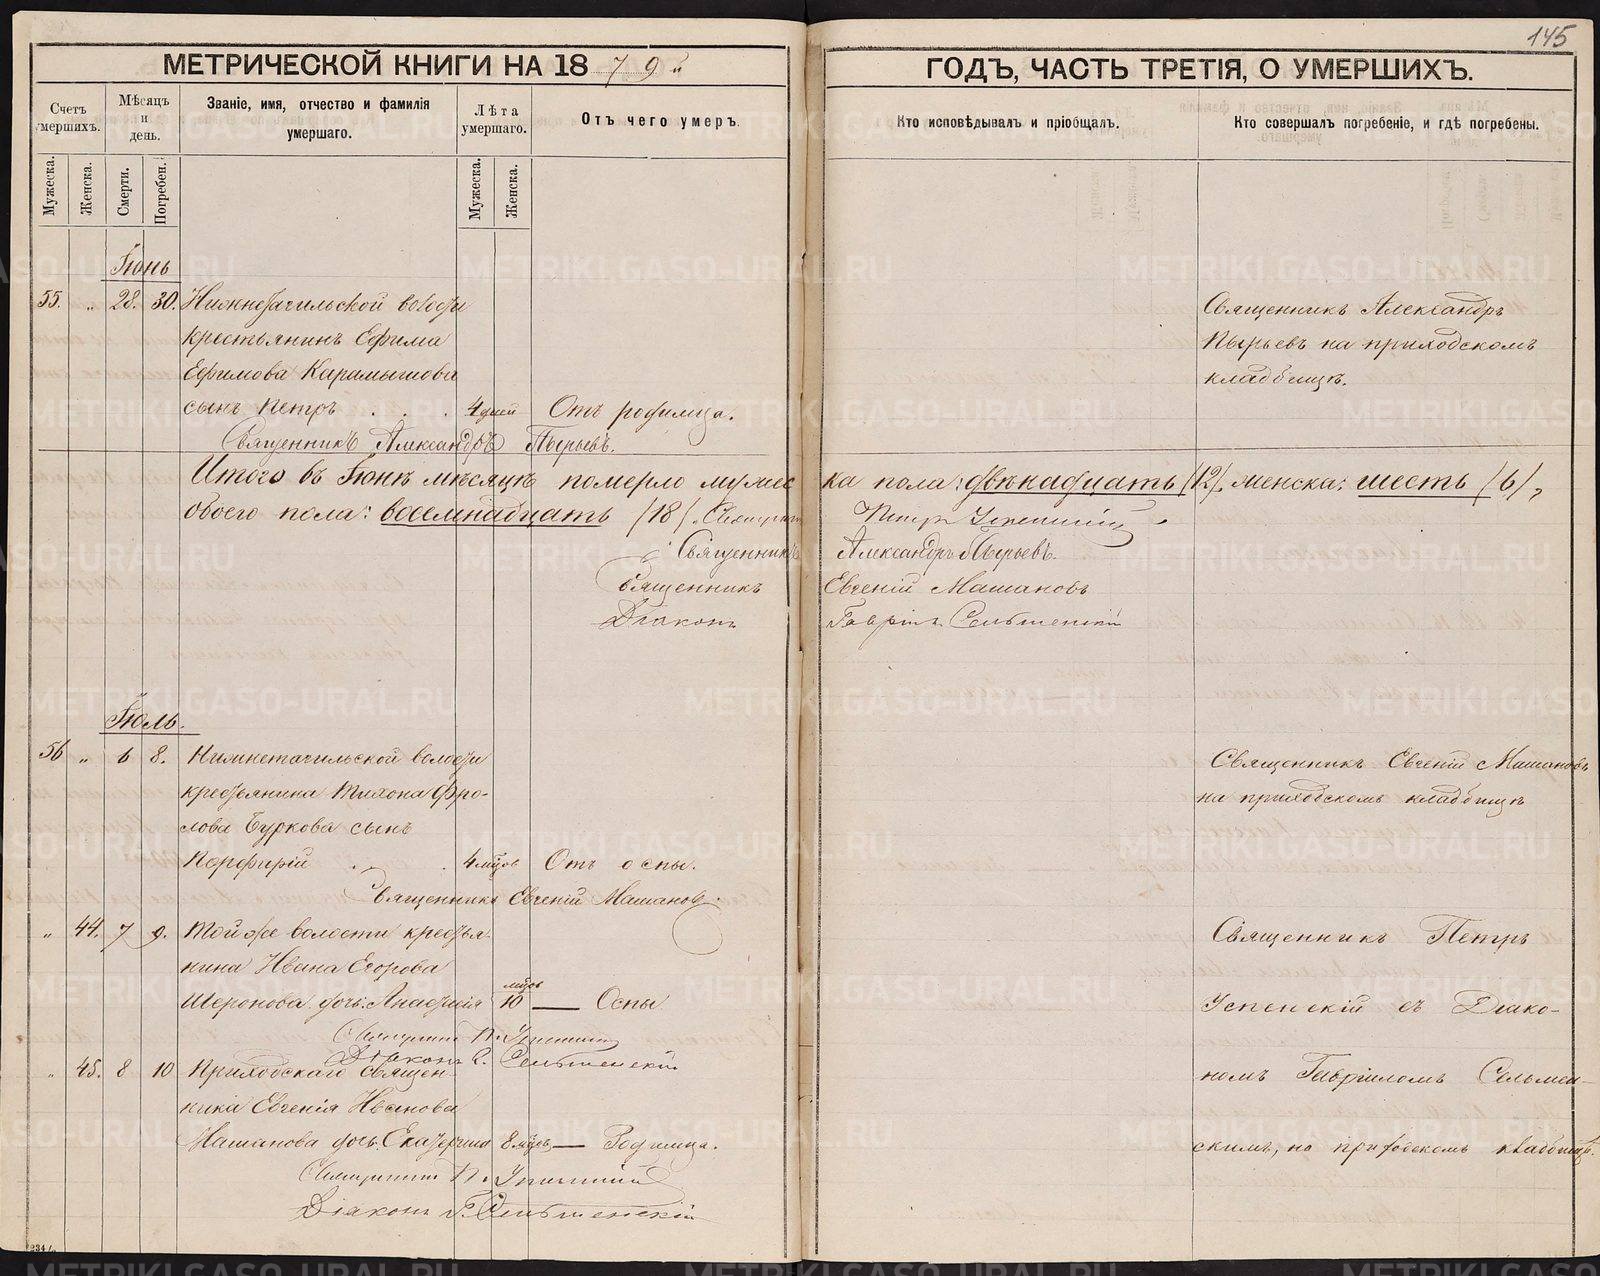 145
МЕТРИЧЕСКОЙ КНИГИ НА 1879й
ГОДЪ, ЧАСТЬ ТРЕТІЯ, О УМЕРШИХЪ.
Счетъ умершихъ.
Мѣсяцъ и день.
Званіе, имя, отчество и фамилія умершаго.
Лѣта умершаго.
Отъ чего умеръ.
Кто исповѣдывалъ и пріобщалъ.
Кто совершалъ погребеніе, и гдѣ погребены.
Мужеска.
Женска.
Смерти.
Погребен.
Мужеска.
Женска.
Іюнь
55. „ 28. 30. Нижнетагильской волости
крестьянинъ Ефима
Ефимова Карамышова
сынъ Петръ . . . 4 дней Отъ родимца.
Священникъ Александръ Пырьевъ.
Священникъ Александръ
Пырьевъ на приходскомъ
кладбищѣ.
Итого въ Іюнѣ мѣсяцѣ померло мужеска пола: двѣнадцать (12), женска: шесть (6),
обоего пола: восемнадцать (18). Священникъ Петръ Успенскій
Священникъ Александръ Пырьевъ.
Священникъ Евгеній Машановъ
Діаконъ Гавріилъ Сельменскій
Іюль.
56 „ 6 8. Нижнетагильской волости
крестьянина Тихона Фро-
лова Буркова сынъ
Порфирій . . 4 мѣсяцовъ Отъ оспы.
Священникъ Евгеній Машановъ.
Священникъ Евгеній Машановъ
на приходскомъ кладбищѣ
„ 44. 7 9. Той же волости крестья-
нина Ивана Егорова
дочь Анастасія 10 мѣсяцовъ — Оспы
Священникъ П. Успенскій
Діаконъ Г. Сельменскій
„ 45. 8 10 Приходскаго Священ-
ника Евгенія Иванова
Машанова дочь Екатерина 8 мѣсяцовъ — Родимца.
Священникъ П. Успенскій
Діаконъ Г. Сельменскій
Священникъ Петръ
Успенскій съ Діако-
номъ Гавріиломъ Сельмен-
скимъ, на приходскомъ кладбищѣ.
METRIKI.GASO-URAL.RU